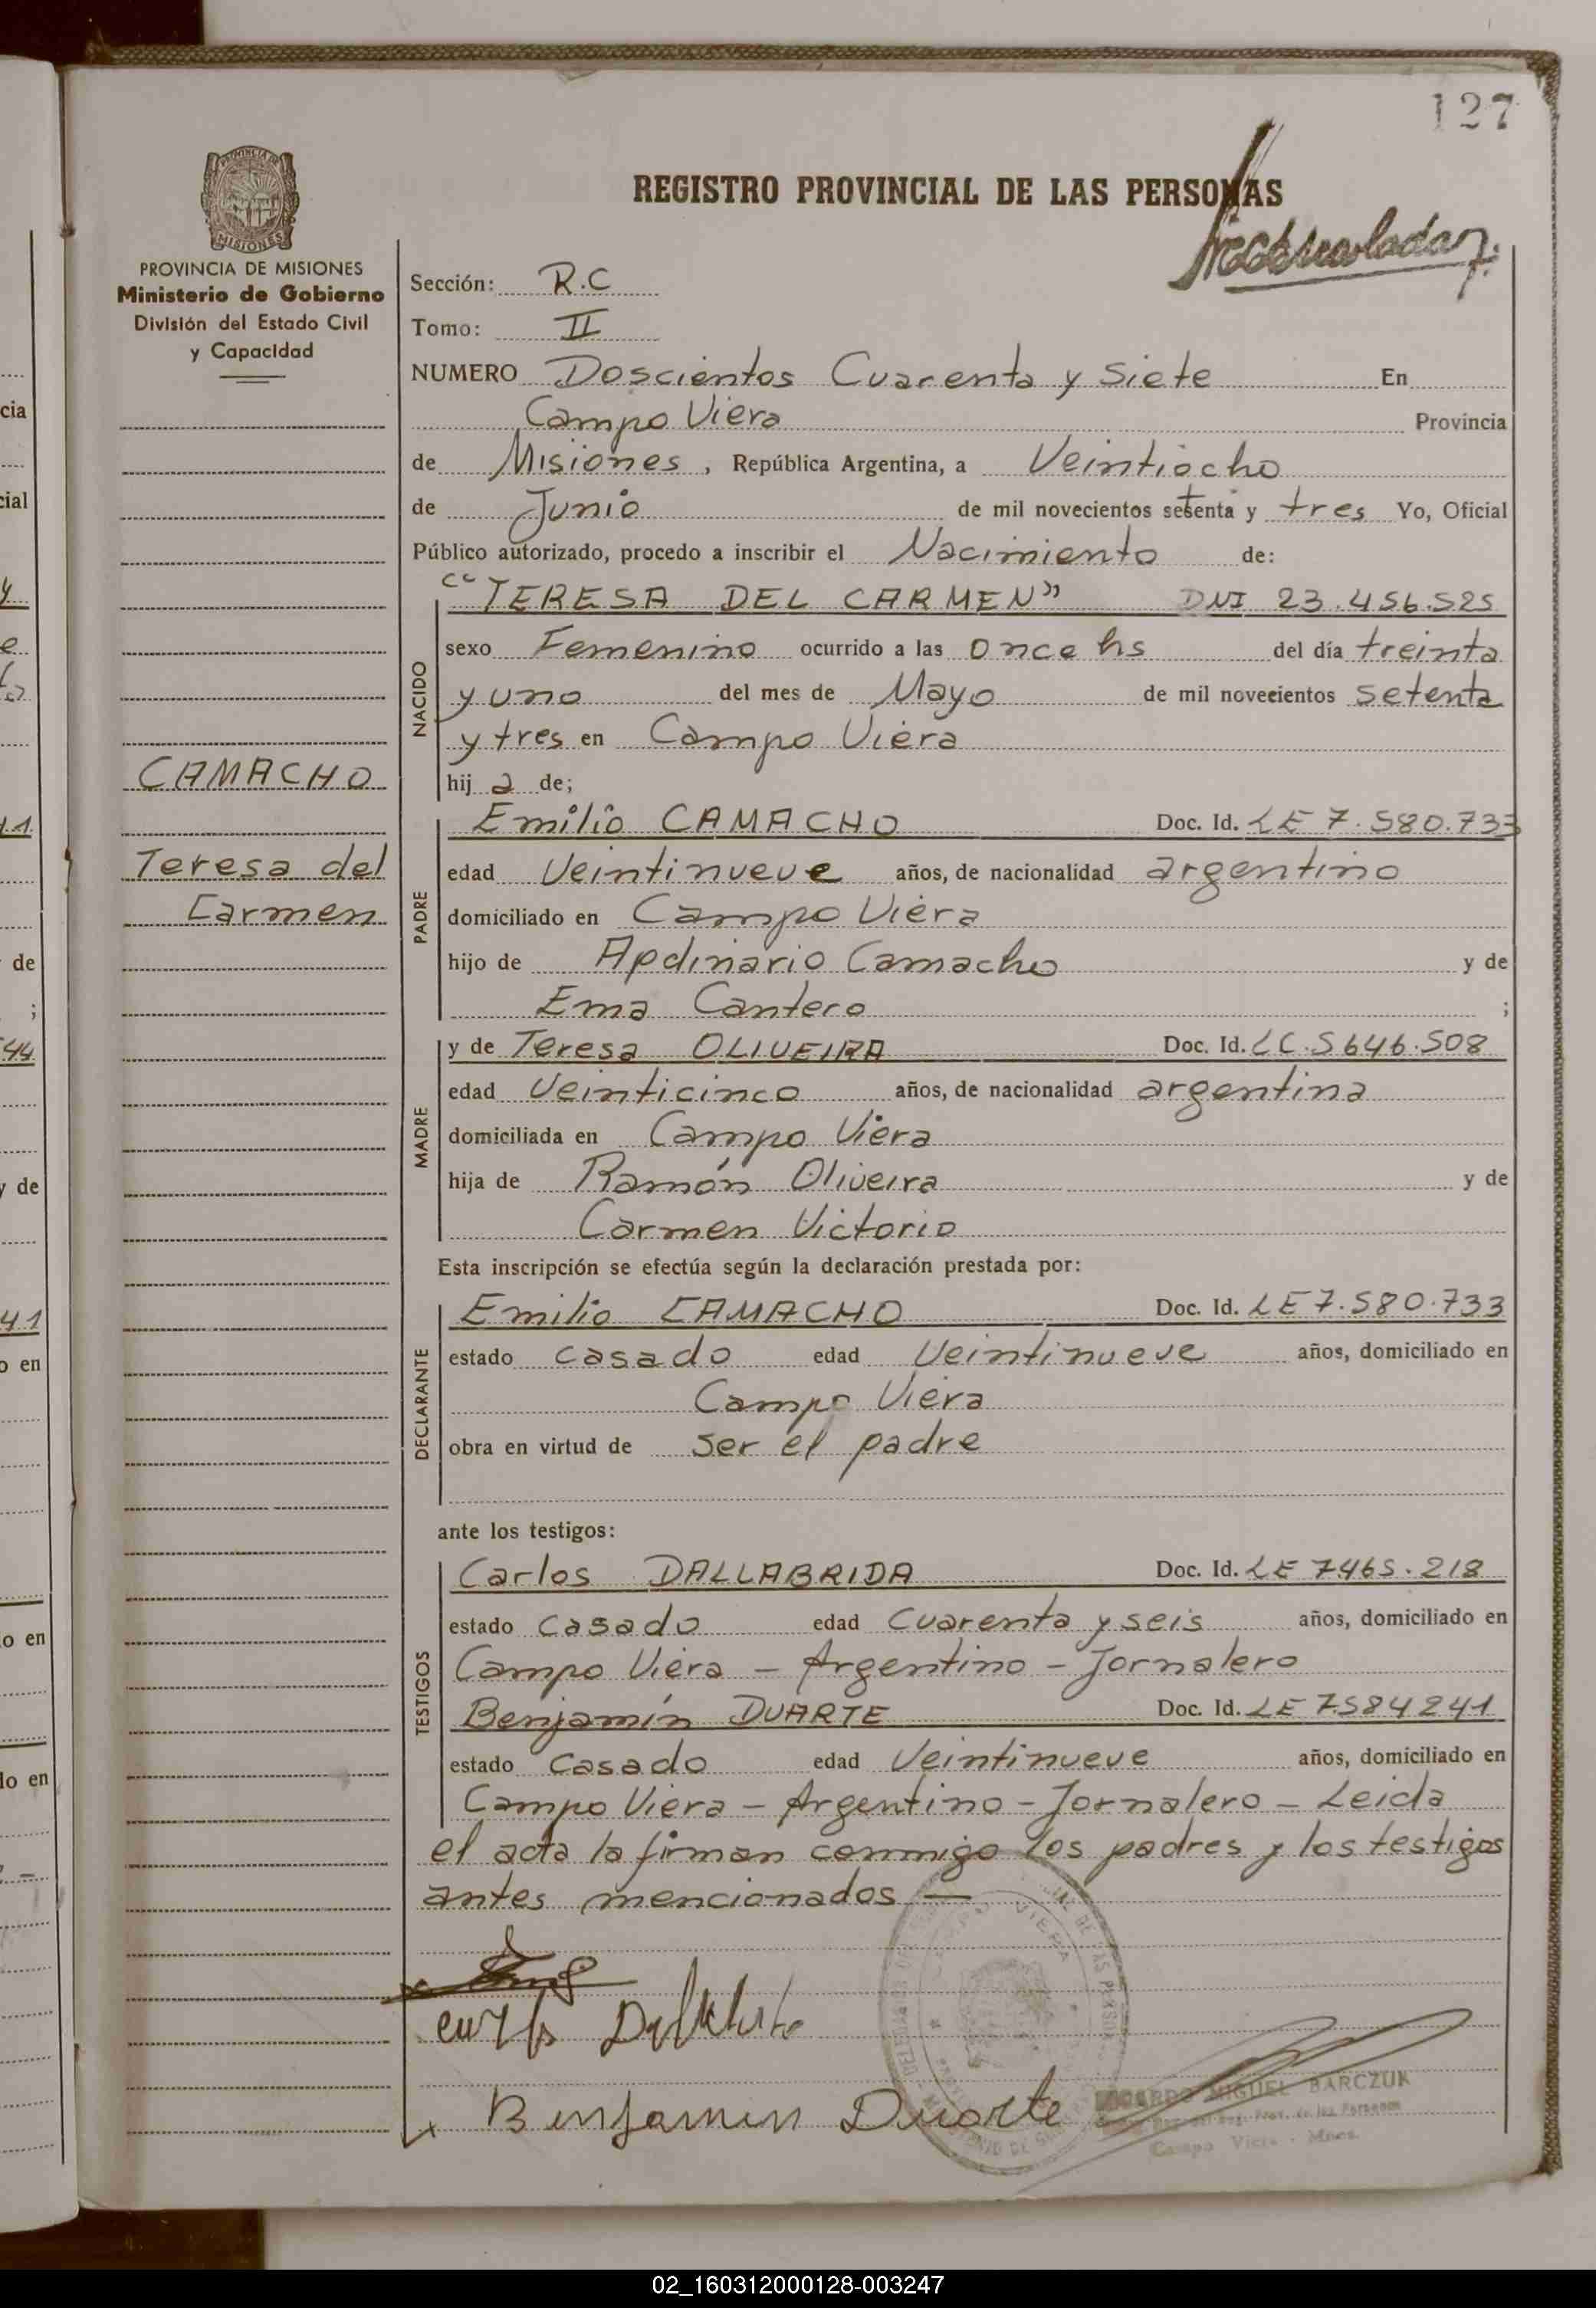 127
REGISTRO PROVINCIAL DE LAS PERSONAS
PROVINCIA DE MISIONES
Ministerio de Gobierno
División del Estado Civil
y Capacidad
CAMACHO
Teresa del
Carmen
Sección: R.C
Tomo: II
NUMERO Doscientos Cuarenta y Siete En
Campo Viera Provincia
de Misiones, República Argentina, a Veintiocho
de Junio de mil novecientos setenta y tres Yo, Oficial
Público autorizado, procedo a inscribir el Nacimiento de:
NACIDO
"TERESA DEL CARMEN" DNI 23.456.525
sexo Femenino ocurrido a las once hs del día treinta
y uno del mes de Mayo de mil novecientos setenta
y tres en Campo Viera
hij a de;
PADRE
Emilio CAMACHO Doc. Id. LE 7.580.733
edad Veintinueve años, de nacionalidad argentino
domiciliado en Campo Viera
hijo de Apolinario Camacho y de
Ema Cantero ;
MADRE
y de Teresa OLIVEIRA Doc. Id. LC.5646.508
edad Veinticinco años, de nacionalidad argentina
domiciliada en Campo Viera
hija de Ramón Oliveira y de
Carmen Victorio
Esta inscripción se efectúa según la declaración prestada por:
DECLARANTE
Emilio CAMACHO Doc. Id. LE 7.580.733
estado casado edad Veintinueve años, domiciliado en
Campo Viera
obra en virtud de ser el padre
ante los testigos:
TESTIGOS
Carlos DALLABRIDA Doc. Id. LE 7465.218
estado casado edad Cuarenta y seis años, domiciliado en
Campo Viera - Argentino - Jornalero
Benjamín DUARTE Doc. Id. LE 7.584241
estado casado edad Veintinueve años, domiciliado en
Campo Viera - Argentino - Jornalero - Leida
el acta la firman conmigo los padres y los testigos
antes mencionados —
Benjamin Duarte
MIGUEL BARCZUK
Campo Viera - Mnes.
02_160312000128-003247